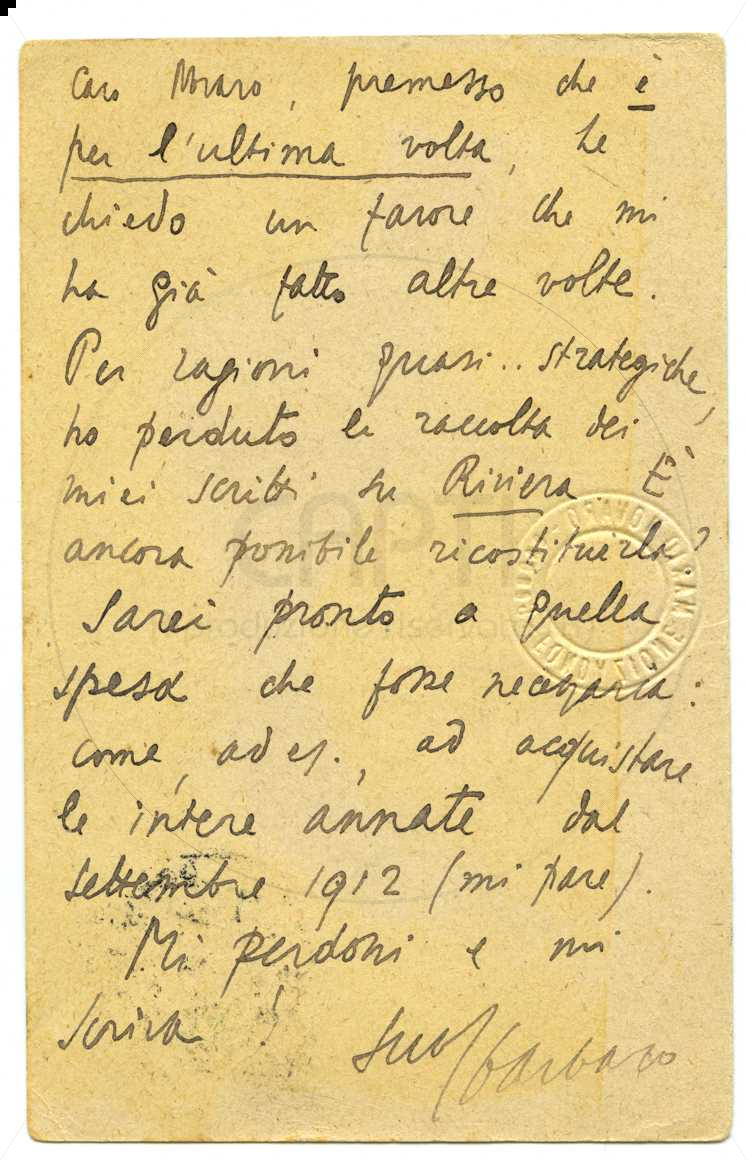 Caro Novaro, premesso che è
per l'ultima volta, Le
chiedo un favore che mi
ha già fatto altre volte.
Per ragioni quasi.. strategiche,
ho perduto la raccolta dei
miei scritti su Riviera È
ancora possibile ricostituirla?
Sarei pronto a quella
spesa che fosse necessaria:
come, ad es., ad acquistare
le intere annate dal
settembre 1912 (mi pare).
Mi perdoni e mi
scriva!
Suo Sbarbaro
FONDAZIONE MARIO NOVARO
CAPTI